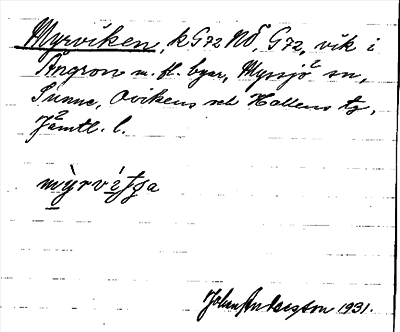 Myrviken, k G72 NÖ, G72, vik i
Ångron m. fl. byar, Myssjö sn,
Sunne, Ovikens och Hallens tg,
Jämtl. l.
Johan Andersson 1931.